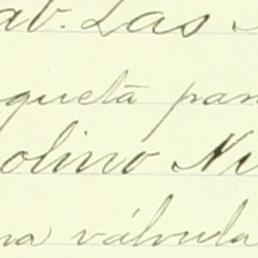 ab. Las
queta par
olino Nu
na válvula